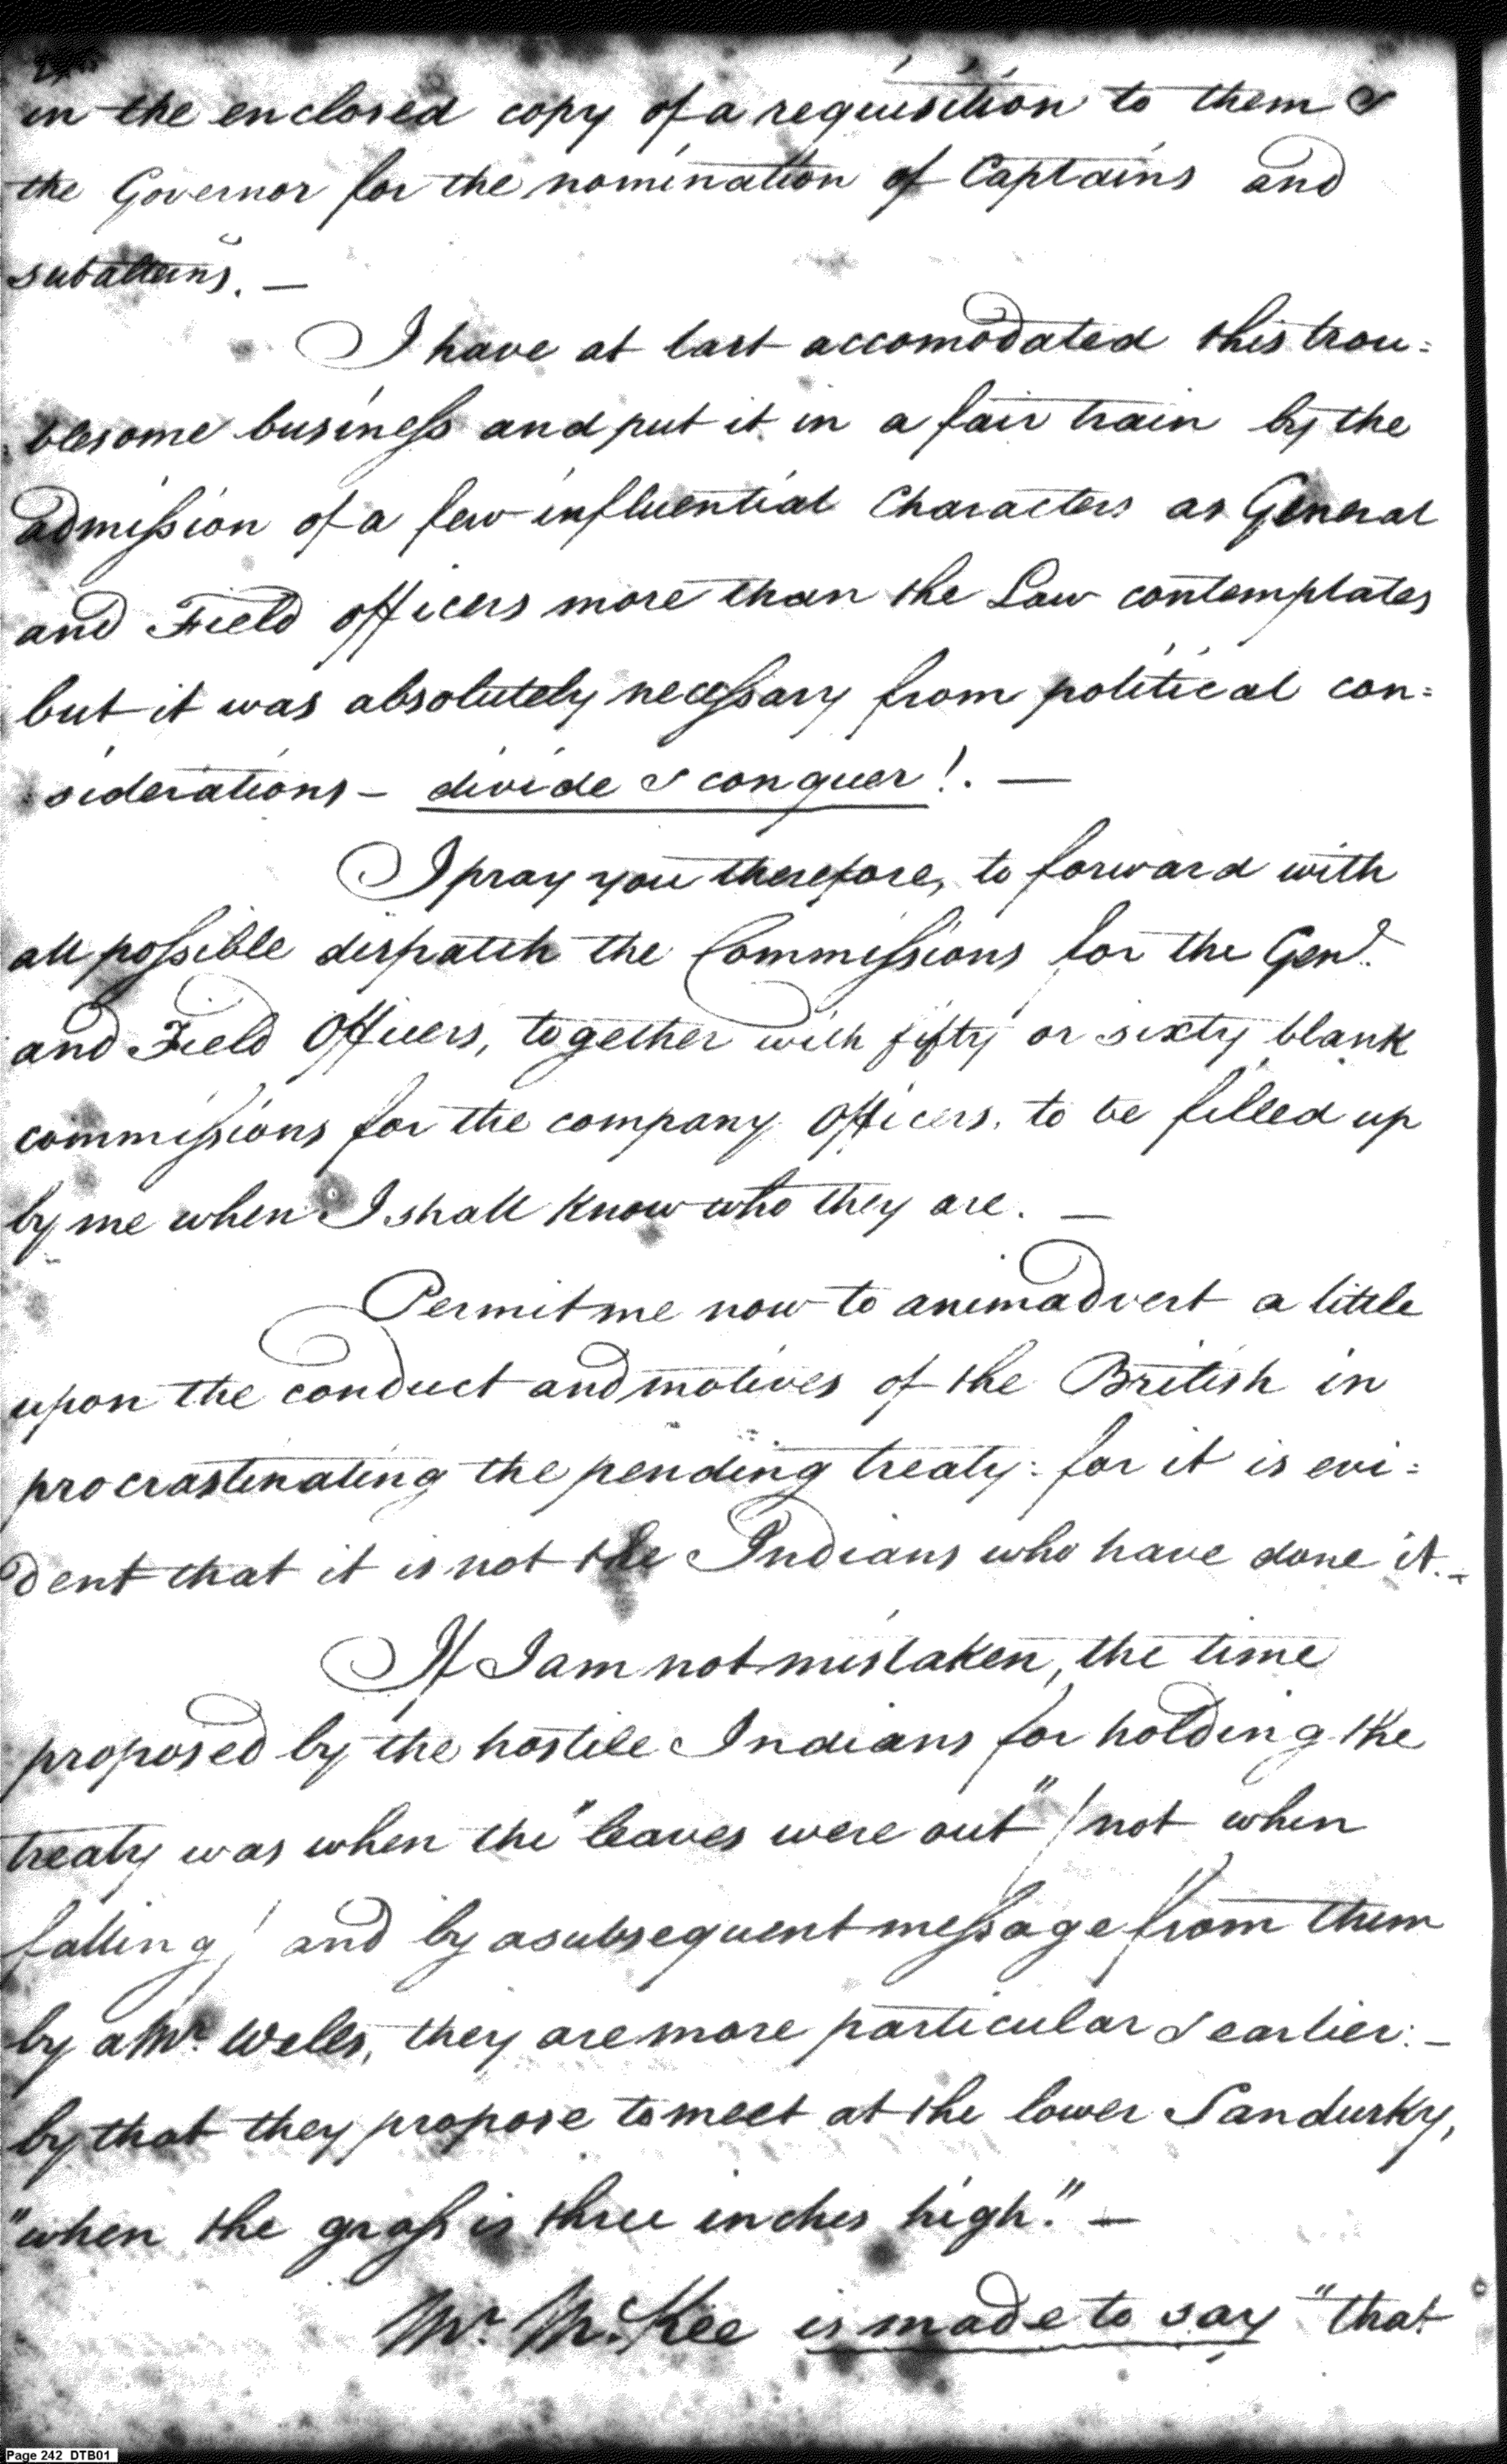 in the enclosed copy of a requisition to them &
the Governor for the nomination of Captains and
subalterns. —
I have at last accomodated this trou=
blesome business and put it in a fair train by the
admission of a few influential Characters as General
and Field officers more than the Law contemplates
but it was absolutely necessary from political con=
siderations — divide & conquer!. —
I pray you therefore, to forward with
all possible dispatch the Commissions for the Genl.
and Field Officers, together with fifty or sixty blank
commissions for the company Officers, to be filled up
by me when I shall know who they are. —
Permit me now to animadvert a little
upon the conduct and motives of the British in
procrastinating the pending treaty: for it is evi=
dent that it is not the Indians who have done it. —
If I am not mistaken, the time
proposed by the hostile Indians for holding the
treaty was when the "leaves were out" /not when
falling/ and by a subsequent message from them
by a Mr. Wells, they are more particular & earlier: —
by that they propose to meet at the lower Sandusky,
"when the grass is three inches high." —
Mr. McKee is made to say "that
Page 242 DTB01